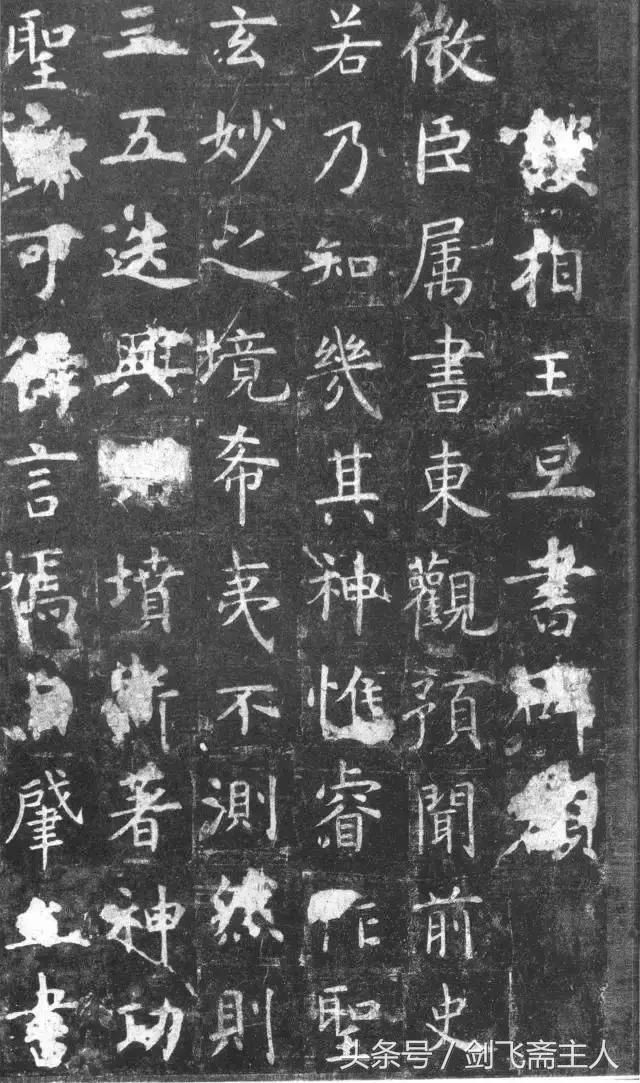 撰相王旦書碑額
微臣属書東觀預聞前史
若乃知幾其神惟睿作聖
玄妙之境希夷不測然則
三五迭興墳斯著神功
聖迹可得言焉自肇立書
头条号 / 剑飞斋主人